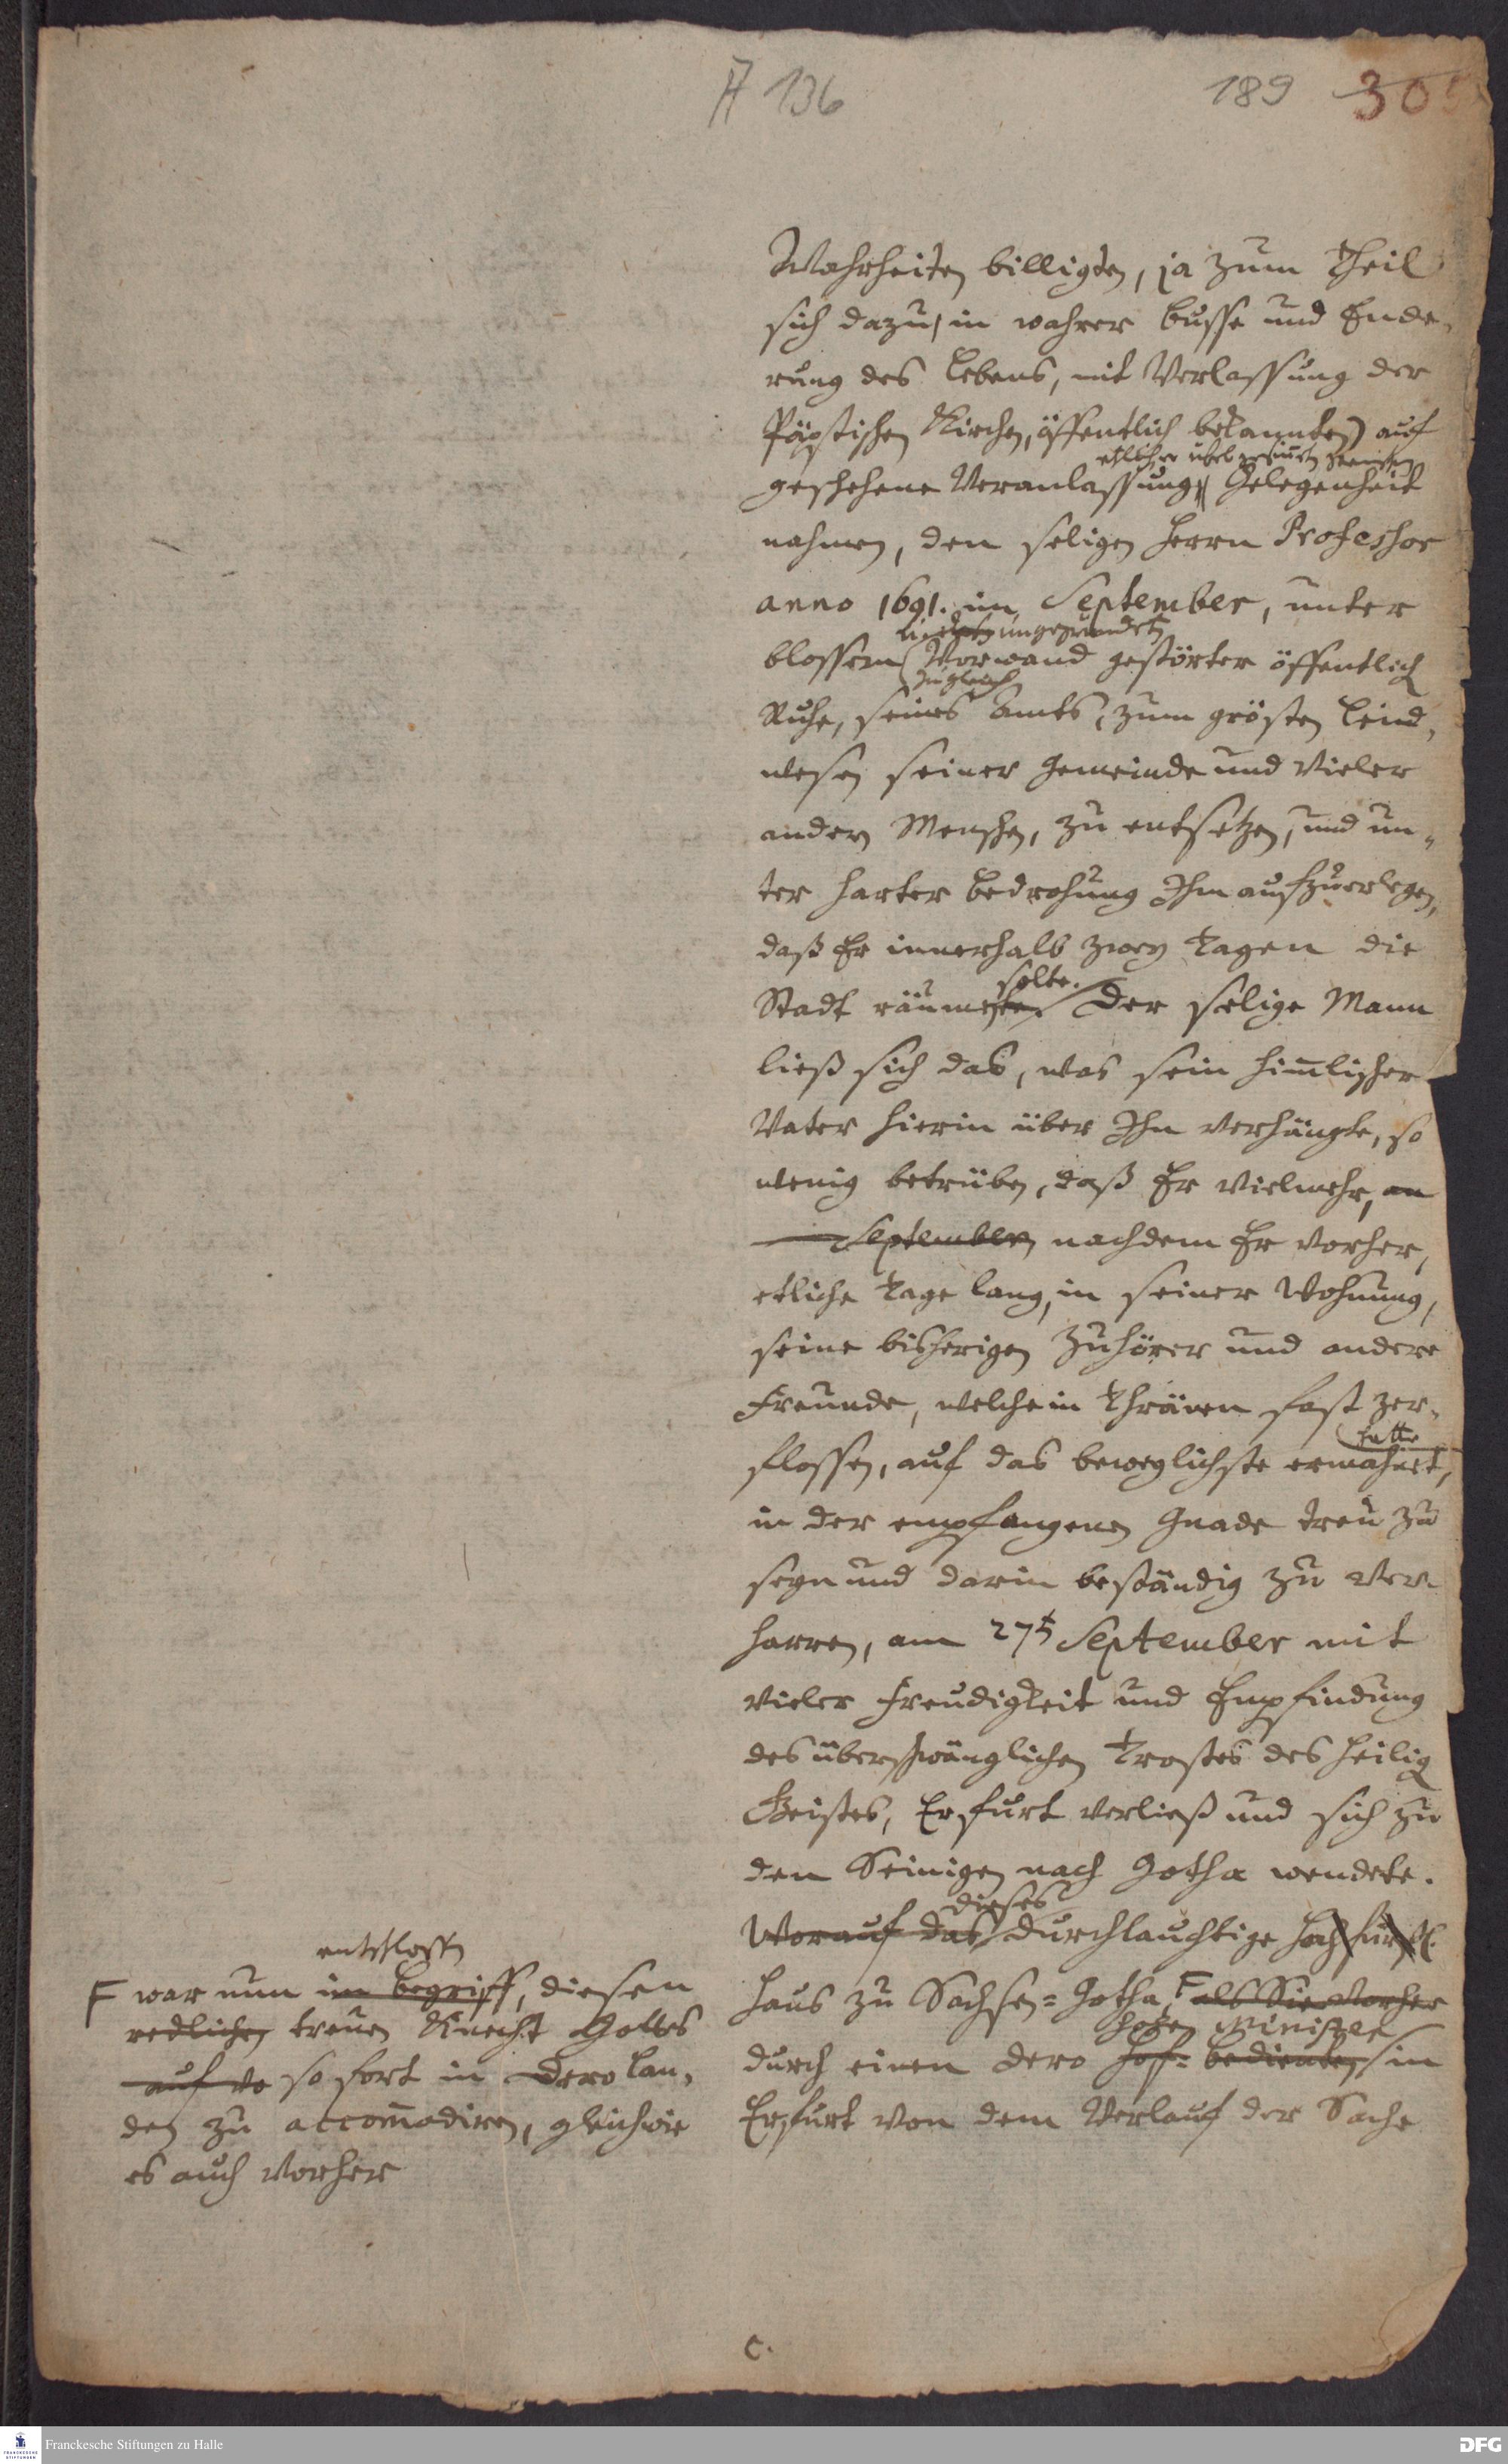 A 136
189 305
Wahrheiten billigten, ja zum Theil
sich dazu, in wahrer Busse und Ende-
rung des Lebens, mit Verlassung der
Päpstischen Kirchen, öffentlich bekannten) auf
etlicher übel gesinnten
geschehene Veranlassung, Gelegenheit
nahmen, den seligen Herrn Professor
anno 1691. im September, unter
ungegründeten
blossem Vorwand gestörter öffentlich
zugleich
Ruhe, seines Amts, zum grösten Leid-
wesen seiner Gemeinde und vieler
andern Menschen, zu entsetzen, und un-
ter harter Bedrohung Ihm aufzuerlegen,
daß Er innerhalb zwey Tagen die
solte.
Stadt räumen Der selige Mann
ließ sich das, was sein himlischer
Vater hierin über Ihn verhängte, so
wenig betrüben, daß Er vielmehr, am
September nachdem Er vorher,
etliche Tage lang, in seiner Wohnung,
seine bisherigen Zuhörer und andere
Freunde, welche in Thränen fast zer-
hatte
flossen, auf das beweglichste ermahnet,
in der empfangenen Gnade treu zu
seyn und darin beständig zu ver-
harren, am 27t September mit
vieler Freudigkeit und Empfindung
des überschwänglichen Trostes des Heilig
Geistes, Erfurt verließ und sich zu
den Seinigen nach Gotha wendete.
dieses
Worauf das durchlauchtige Hochfürstl.
Haus zu Sachsen-Gotha, F als Sie vorher
hohen Minister
durch einen dero Hof-bedienten in
Erfurt von dem Verlauf der Sache
entschlossen
F war nun im Begriff, diesen
redlichen treuen Knecht Gottes
auf so fort in Dero Lan-
den zu accom̄odiren, gleichwie
es auch vorher
C.
Franckesche Stiftungen zu Halle
DFG